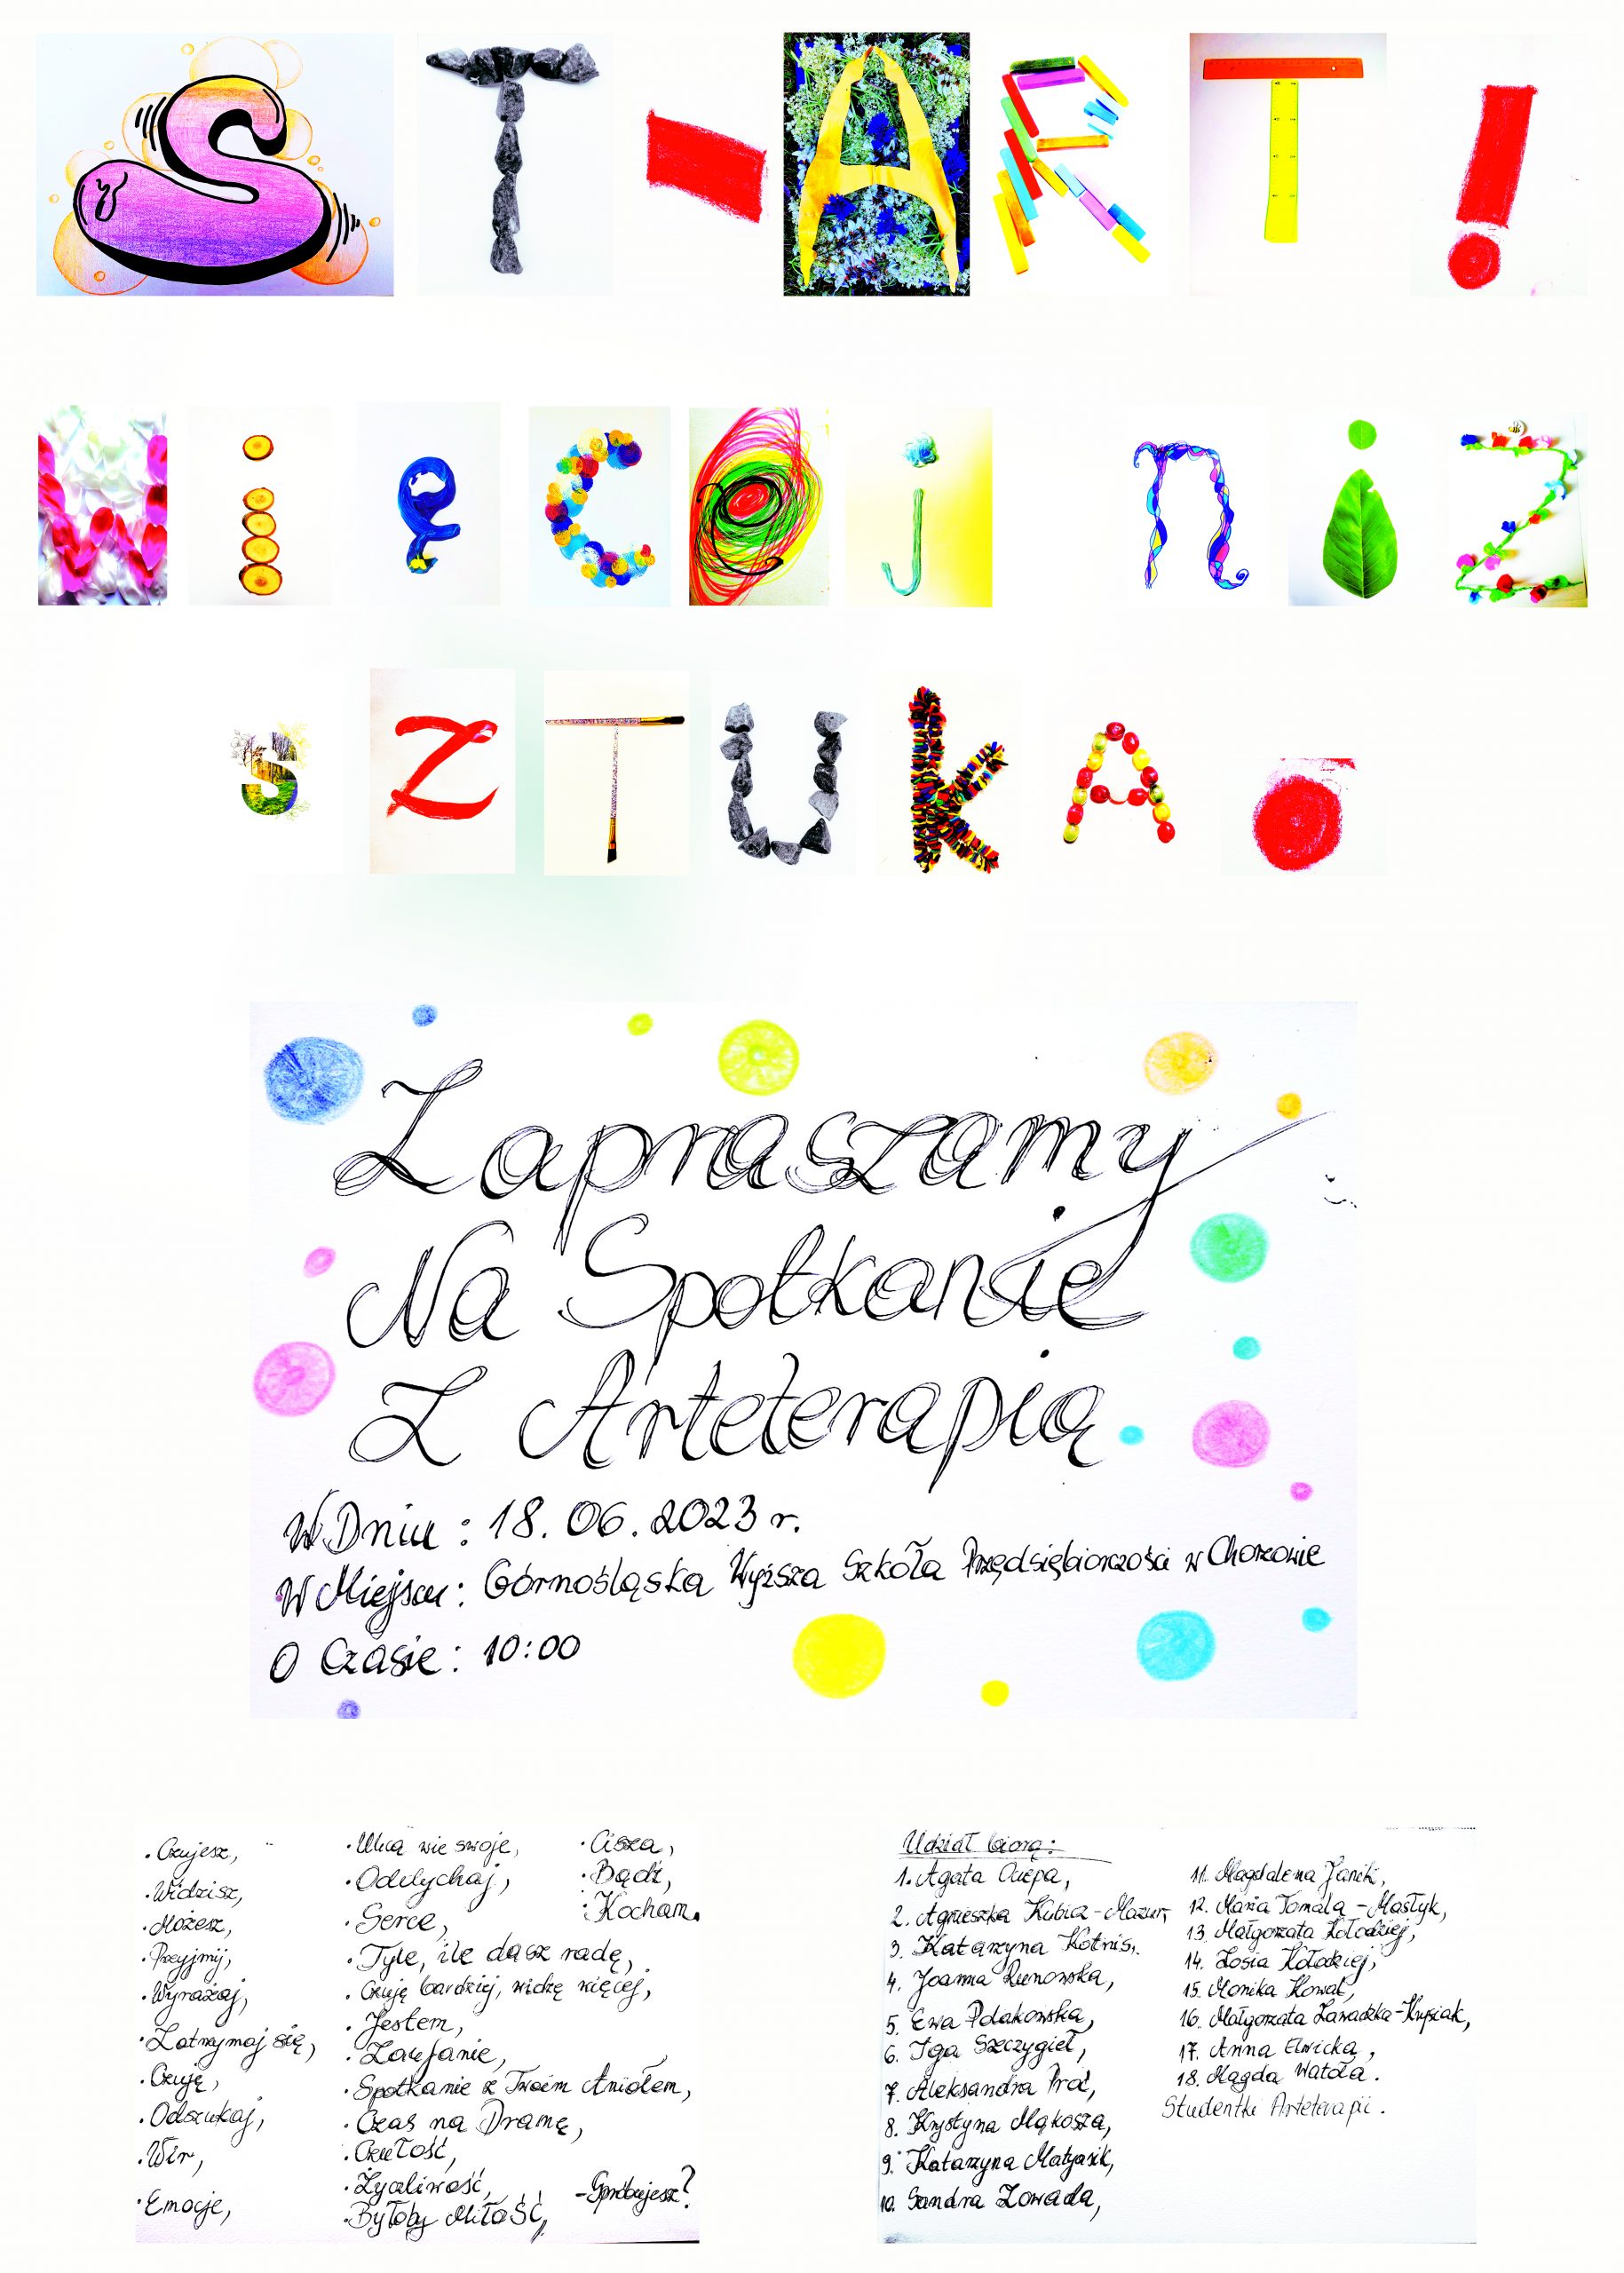 ST-ART!
Więcej niż
sztuka.
Zapraszamy
Na Spotkanie
Z Arteterapią
W Dniu : 18. 06. 2023 r.
W Miejscu : Górnośląska Wyższa Szkoła Przedsiębiorczości w Chorzowie
O Czasie : 10:00
• Czujesz,
• Widzisz,
• Możesz,
• Przyjmij,
• Wyrażaj,
• Zatrzymaj się,
• Czuję,
• Odszukaj,
• Wir,
• Emocje,
• wie swoje,
• Oddychaj,
• Serce,
• Tyle, ile dasz radę,
• Czuję bardziej, widzę więcej,
• Jestem,
• Zaufanie,
• Spotkanie z Twoim Aniołem,
• Czas na Dramę,
• Czułość,
• Życzliwość,
• Byłoby Miłość,
• Cisza,
• Bądź,
• Kocham.
- Spróbujesz?
Udział biorą:
1. Agata
2. Agnieszka Kubica - Mazur,
3. Katarzyna Kotnis,
4. Joanna
5. Ewa Polakowska,
6. Iga Szczygieł,
7. Aleksandra Proć,
8. Krystyna Mąkosza,
9. Katarzyna Matyasik,
10. Sandra Zowada,
11. Magdalena Janik,
12. Maria Tomala - Mastyk,
13. Małgorzata Kołodziej,
14. Zosia Kołodziej,
15. Monika Kowal,
16. Małgorzata Zawadzka - Krysiak,
17. Anna
18. Magda Watoła.
Studentki Arteterapii.